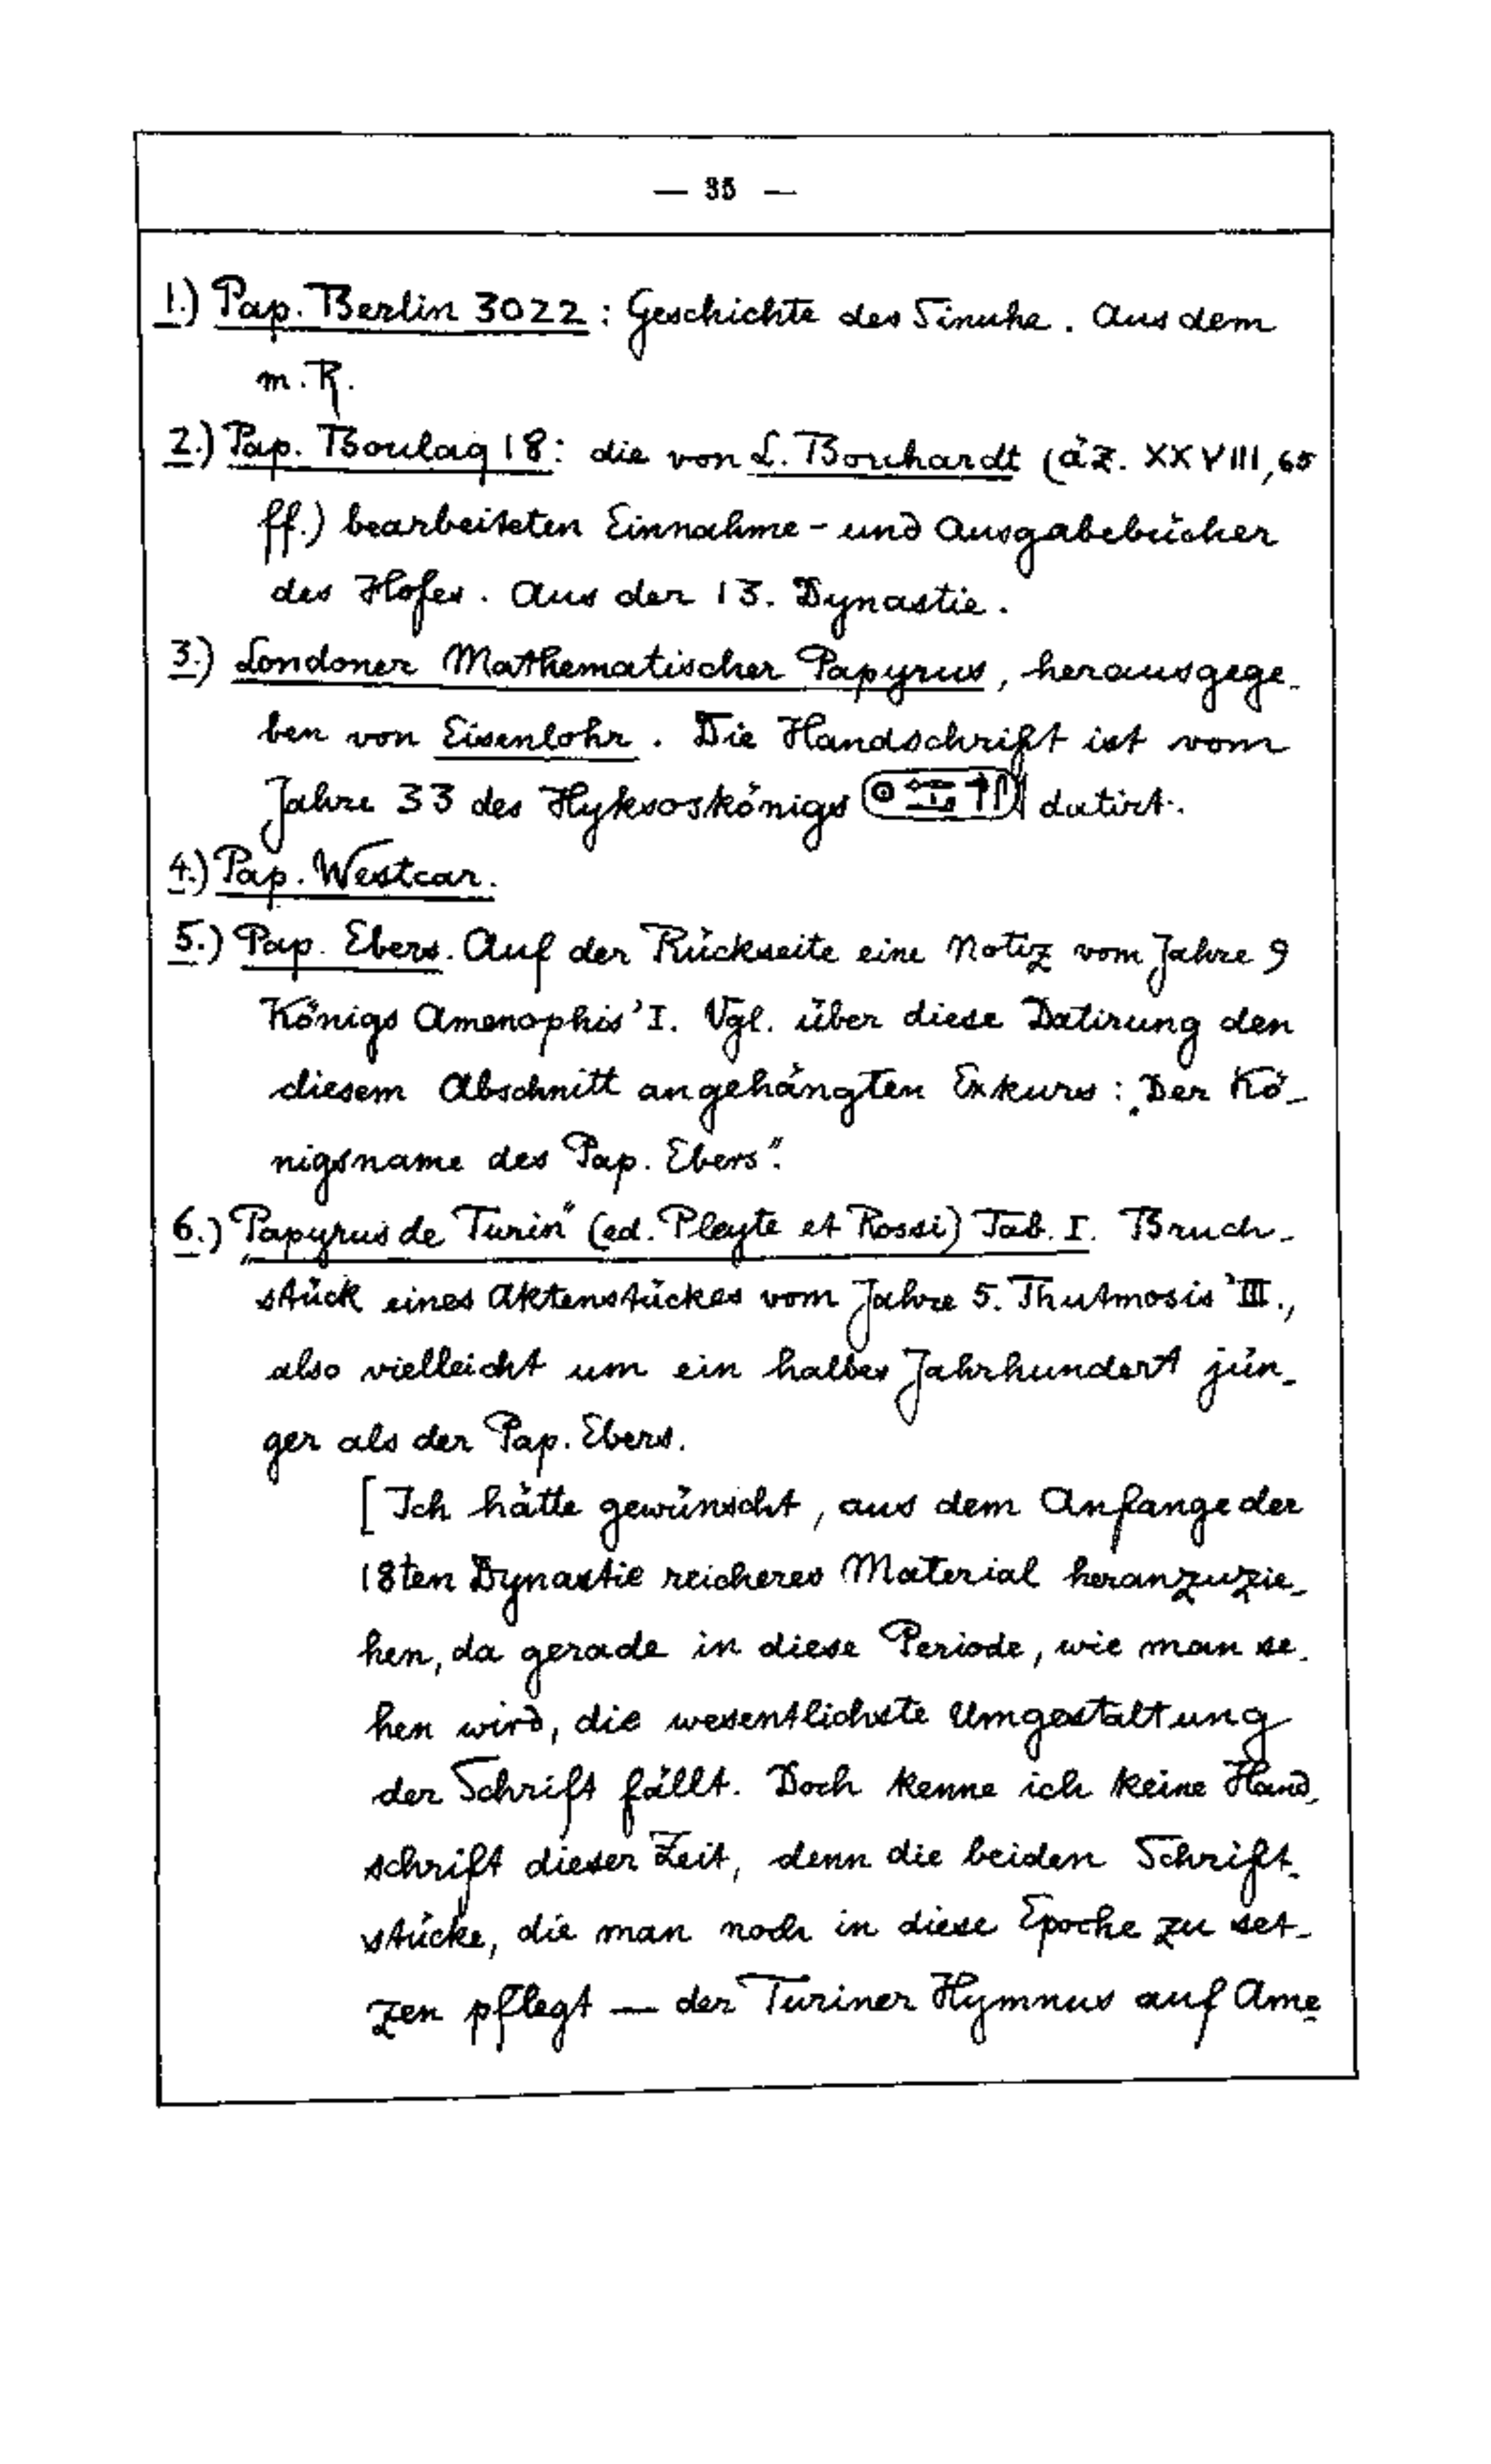 — 35 —
1.) Pap. Berlin 3022 : Geschichte des Sinuhe. Aus dem
m. R.
2.) Pap. Boulaq 18: die von L. Borchardt (äZ. XXVIII, 65
ff.) bearbeiteten Einnahme- und Ausgabebücher
des Hofes. Aus der 13. Dynastie.
3.) Londoner Mathematischer Papyrus, herausgege-
ben von Eisenlohr. Die Handschrift ist vom
Jahre 33 des Hyksoskönigs datirt.
4.) Pap. Westcar.
5.) Pap. Ebers. Auf der Rückseite eine Notiz vom Jahre 9
Königs Amenophis' I. Vgl. über diese Datirung den
diesem Abschnitt angehängten Exkurs: „Der Kö-
nigsname des Pap. Ebers".
6.) „Papyrus de Turin" (ed. Pleyte et Rossi) Tab. I. Bruch-
stück eines Aktenstückes vom Jahre 5. Thutmosis' III.,
also vielleicht um ein halbes Jahrhundert jün-
ger als der Pap. Ebers.
[Ich hätte gewünscht, aus dem Anfange der
18ten Dynastie reicheres Material heranzuzie-
hen, da gerade in diese Periode, wie man se-
hen wird, die wesentlichste Umgestaltung
der Schrift fällt. Doch kenne ich keine Hand-
schrift dieser Zeit, denn die beiden Schrift-
stücke, die man noch in diese Epoche zu set-
zen pflegt — der Turiner Hymnus auf Ame-